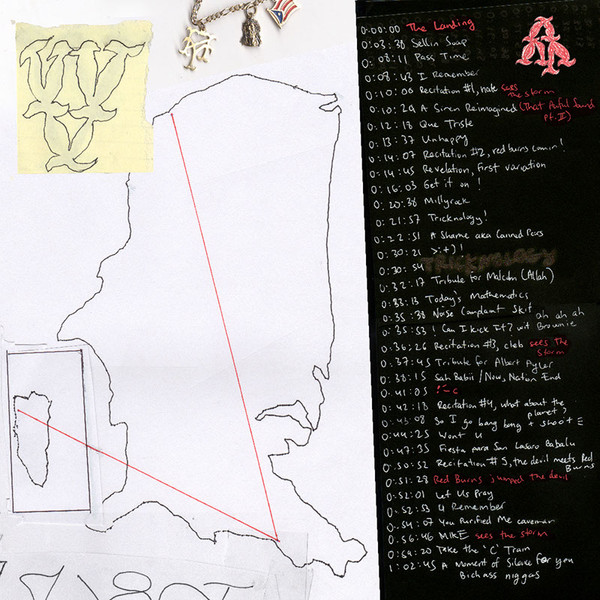 0:00:00 The Landing
0:03:38 Sellin Soap
0:08:11 Pass Time
0:08:43 I Remember
0:10:06 Recitation #1, nate sees
the storm
0:10:29 A Siren Reimagined (That Awful Sound
pt. II)
0:12:18 Que Triste
0:13:37 Unhappy
0:14:07 Recitation #2, red burns comin!
0:14:45 Revelation, First variation
0:16:03 Get it on!
0:20:38 Millyrock
0:21:57 Tricknology!
0:22:51 A Shame aka Canned Pears
0:30:21 >:+)!
0:30:54
TRICKNOLOGY
0:32:17 Tribute for Malcolm (Allah)
0:33:13 Today's Mathematics
0:35:38 Noise Complaint Skit
ah ah ah
0:35:53 I Can I Kick It? wit Brownie
0:36:26 Recitation #3, cleb sees the
storm
0:37:45 Tribute for Albert Ayler
0:38:15 Sah Babii / Now, Nation End
0:41:05 :-c
0:42:18 Recitation #4, what about the
planet?
0:43:08 So I go bang bong + shoot
0:44:25 Wont U
0:47:35 Fiesta para San Lasaro Babalu
0:50:52 Recitation #5, the devil meets Red
Burns
0:51:28 Red Burns jumped the devil
0:52:01 Let Us Pray
0:52:53 U Remember
0:54:07 You Purified Me caveman
0:56:46 MIKE sees the storm
0:59:20 Take the 'C' Train
1:02:45 A Moment of Silence for you
Bichass niggas